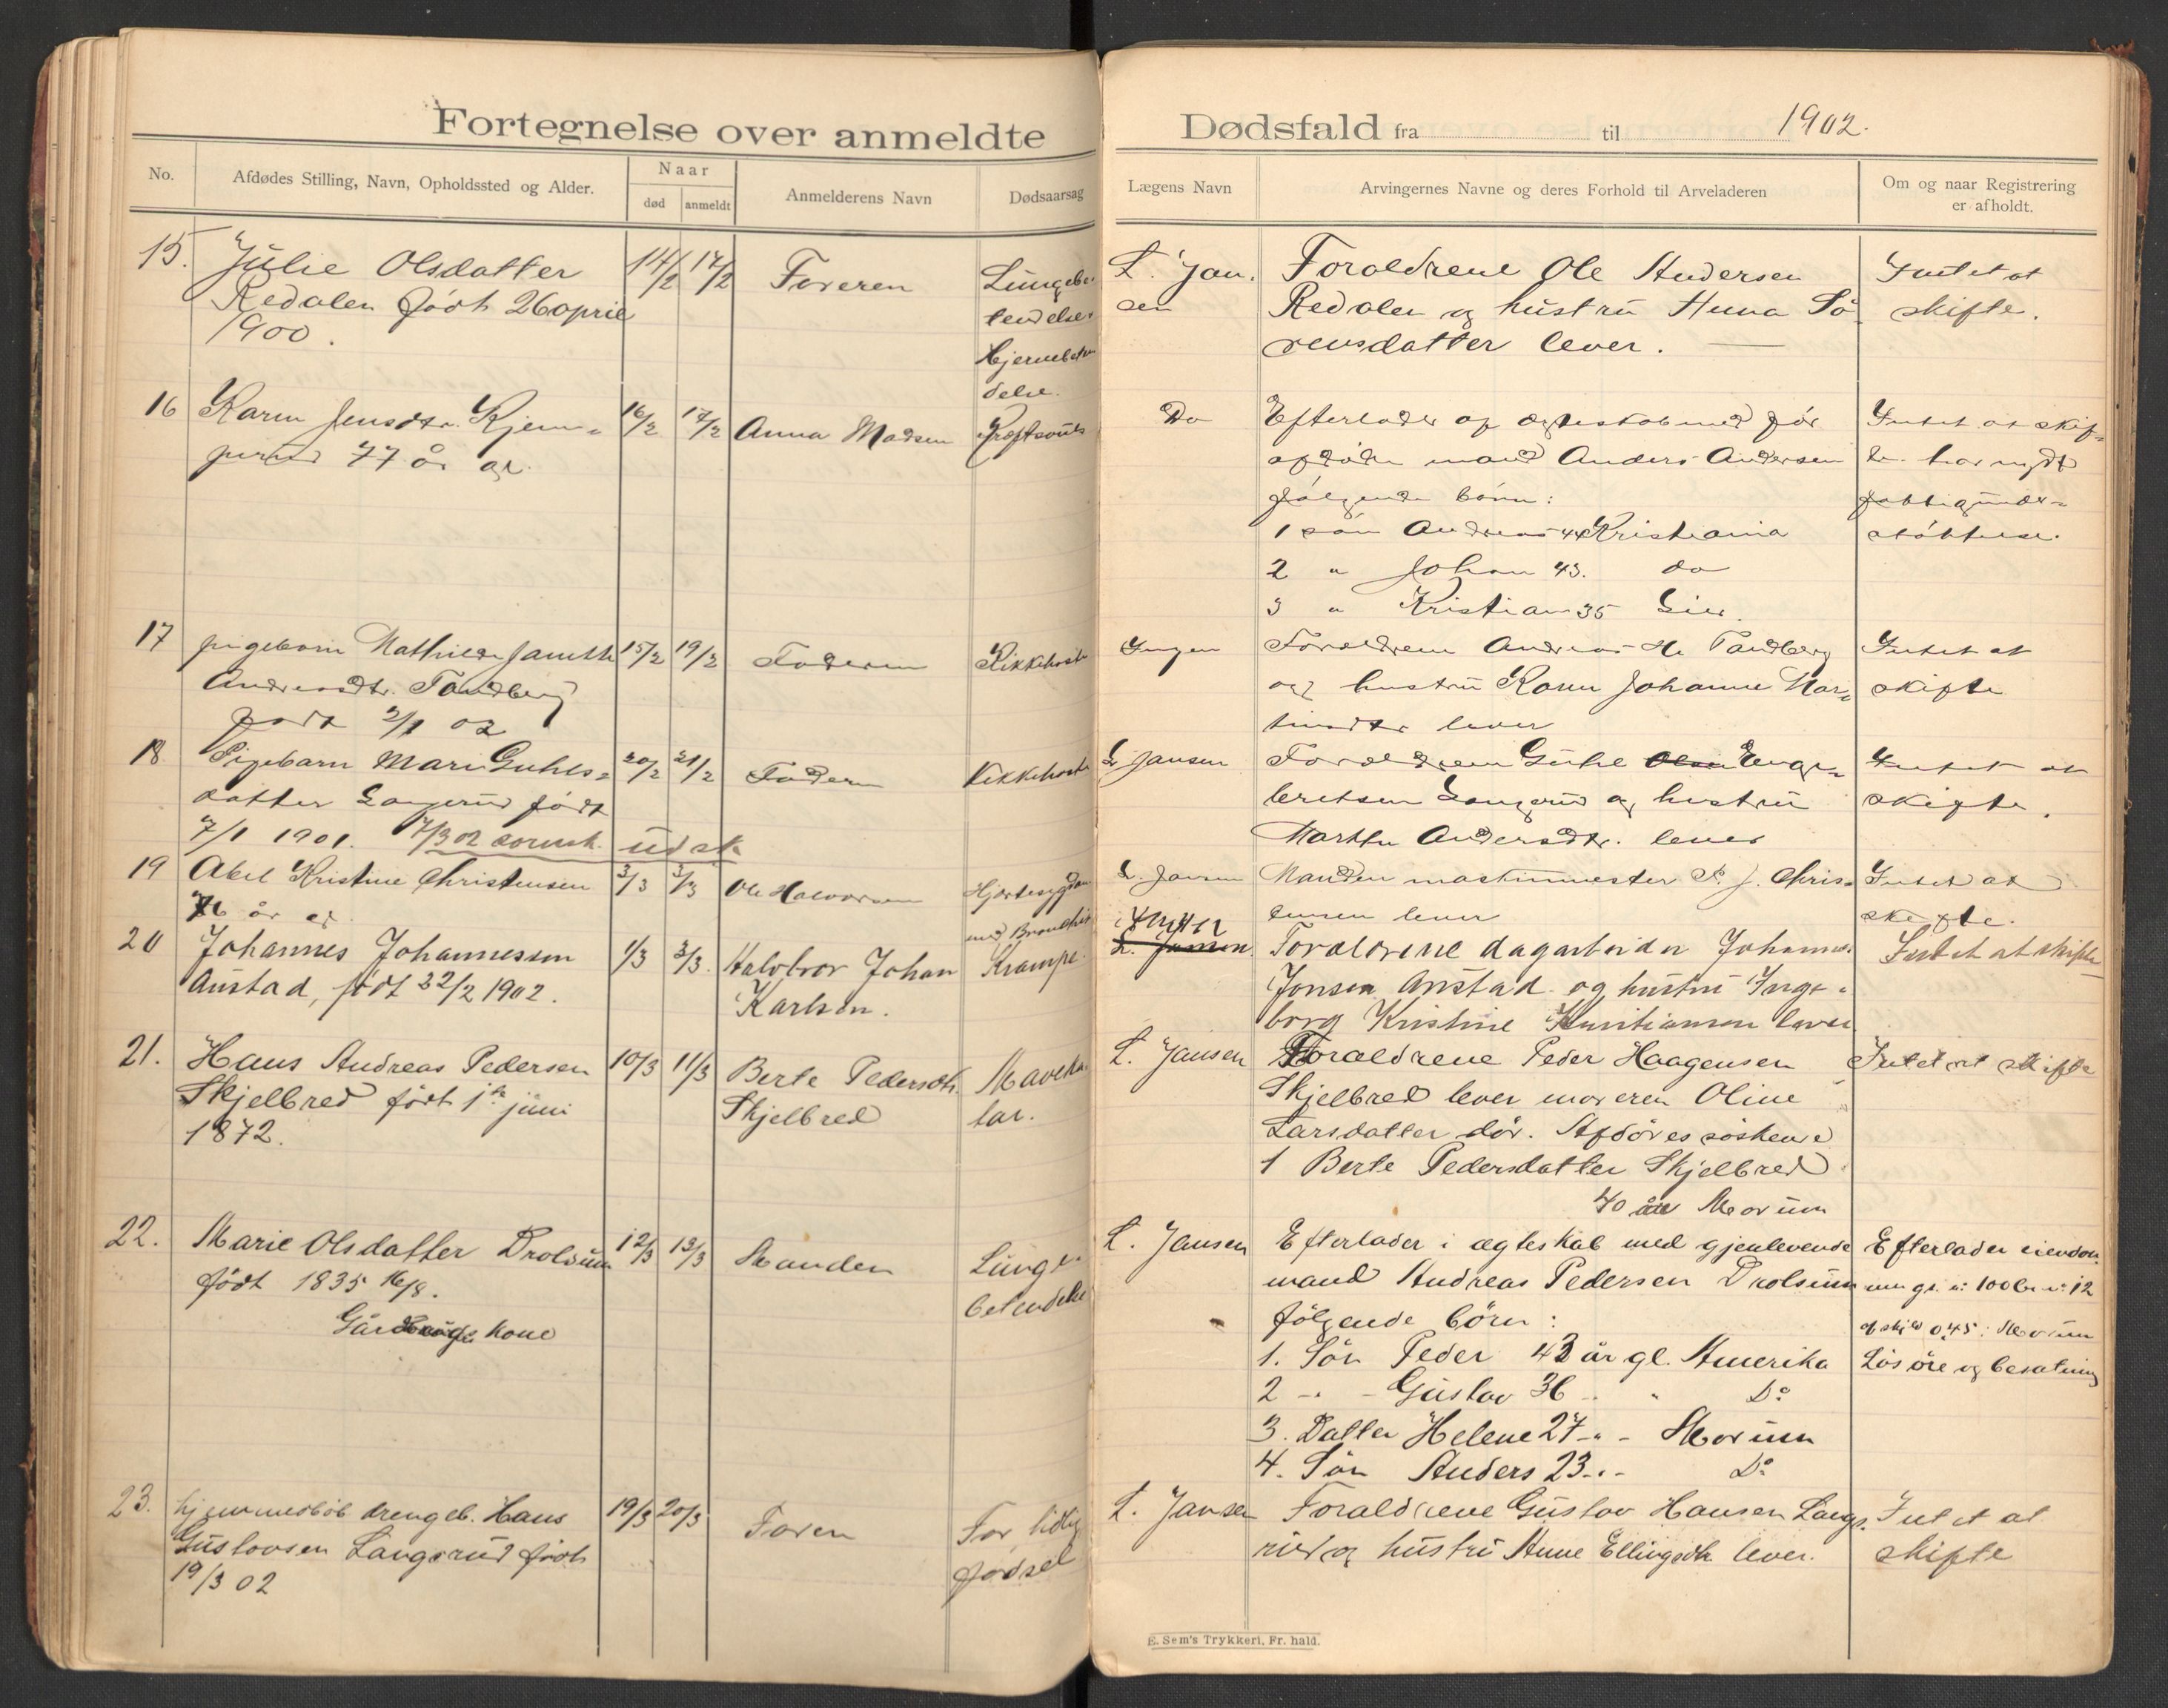 Fortegnelse over anmeldte
No.
Afdødes Stilling, Navn, Opholdssted og Alder.
Naar
død
anmeldt
Anmelderens Navn
Dødsaarsag
15.
Julie Olsdatter
Redalen født 26 april
1900.
14/2
17/2
Faderen
Lungebe-
tendelse
Hjernebeten
delse.
16
Karen Jensdtr. Kjem=
perud 77 år gl.
16/2
17/2
Anna Madsen
17
pigebarn Mathilde Janette
Andreasdtr. Tandberg
født 2/1 02
15/2
19/2
Faderen
Kikkehoste
18
Pigebarn Mari Guhls=
datter Langerud født
7/1 1901. 7/3 02 dørmk. udsk
20/2
21/2
Faderen
Kikkehoste
19
Abel Kristine Christensen
76 år gl.
3/3
3/3
Ole Halvorsen
Hjertesygdom
med Bronchit
20
Johannes Johannessen
Austad, født 22/2 1902.
1/3
3/3.
Halvbror Johan
Karlsen.
Krampe.
21.
Hans Andreas Pedersen
Skjelbred født 1ste juni
1872.
10/3
11/3
Berte Pedersdtr.
Skjelbred
Maveka-
tar.
22.
Marie Olsdatter Drolsum
født 1835 16/8.
Gårdbrugs kone
12/3
13/3
Manden
Lunge-
betendelse
23.
hjemmedøb drengeb. Hans
Gustavsen Langerud født
19/3 02
19/3
20/3
Faren
For tidlig
fødsel
Dødsfald fra til 1902.
Lægens Navn
Arvingernes Navne og deres Forhold til Arveladeren
Om og naar Registrering
er afholdt.
L. Jan-
sen
Foraldrene Ole Andersen
Redalen og hustru Anna Sø
rensdatter lever.
Intet at
skifte.
Do
Efterlader af ægteskab med før
afdøde mand Anders Andersen
følgende børn:
1 søn Andreas 44 Kristiania
2 " Johan 43. do
3 " Kristian 35 Lier.
Intet at skif=
te. har nydt
fattigunder=
støttelse.
Ingen
Foreldrene Andreas H. Tandberg
og hustru Karen Johanne Mar=
tinsdtr lever
Intet at
skifte
L. Jansen
Foreldrene Guhl Olsen Enge=
bretsen Langerud og hustru
Marthe Andersdtr. lever
Intet at
skifte.
L. Jansen
Manden maskinmester P. J. Chris=
tensen lever
Intet at
skifte.
L. Jansen.
Foraldrene dagarbeider Johannes
Jonsen Austad og hustru Inge-
borg Kristine Kristiansen lever
Intet at skifte
L. Jansen
Foraldrene Peder Haagensen
Skjelbred lever moderen Oline
Larsdatter død. Afdødes søskende
1 Berte Pedersdatter Skjelbred
40 år Modum
Intet at skifte
L. Jansen
Efterlader i ægteskab med gjenlevende
mand Andreas Pedersen Drolsum
følgende børn:
1. Søn Peder 42 år gl. Amerika
2 -"- Gustav 36 - " Do
3. Datter Helene 27 -"- Modum
4. Søn Anders 23 -"- Do
Efterlader eiendom
men gr. n: 100 br. n: 12
af skyld 0,45 i Modum
Løsøre og besætning
L. Jansen
Foraldrene Gustav Hansen Lange-
rud og hustru Anne Ellingsdtr lever.
Intet at
skifte
E. Sem's Trykkeri, Fr. hald.